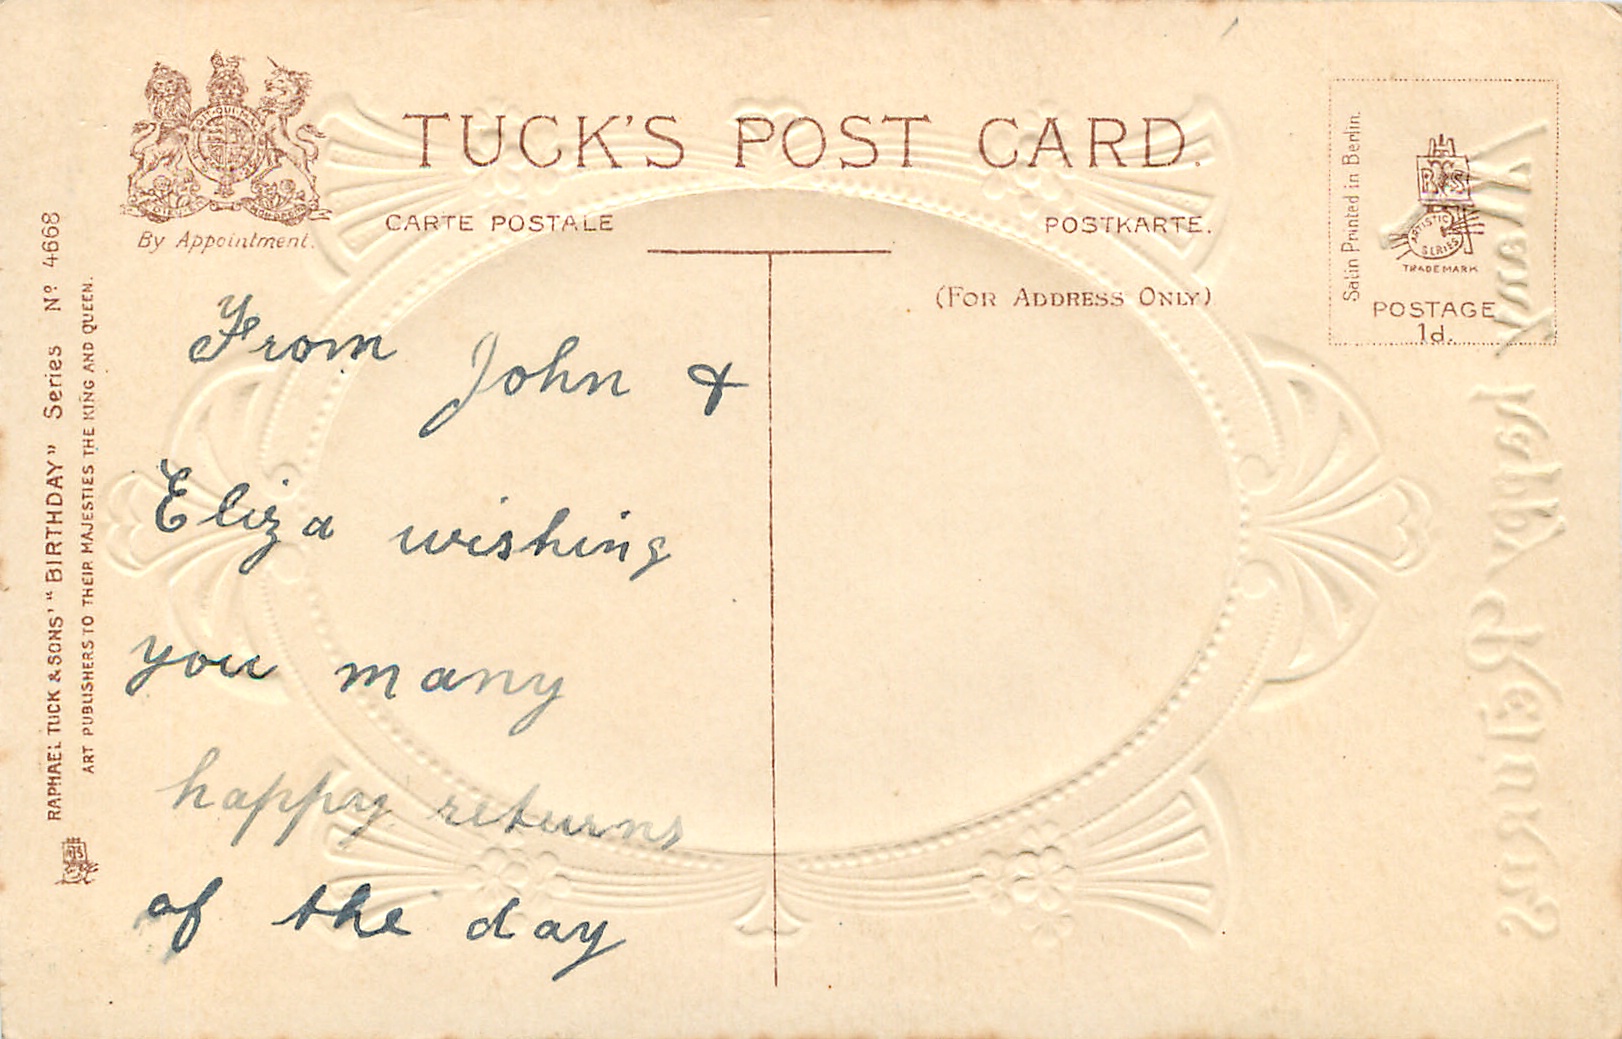 TUCK'S POST CARD.
By Appointment.
CARTE POSTALE
POSTKARTE.
(FOR ADDRESS ONLY)
Satin Printed in Berlin.
R T S
ARTISTIC
SERIES
TRADE MARK
POSTAGE
1d.
From John &
Eliza wishing
you many
happy returns
of the day
RAPHAEL TUCK & SONS' "BIRTHDAY" Series Nº 4668
ART PUBLISHERS TO THEIR MAJESTIES THE KING AND QUEEN.
Many happy Returns